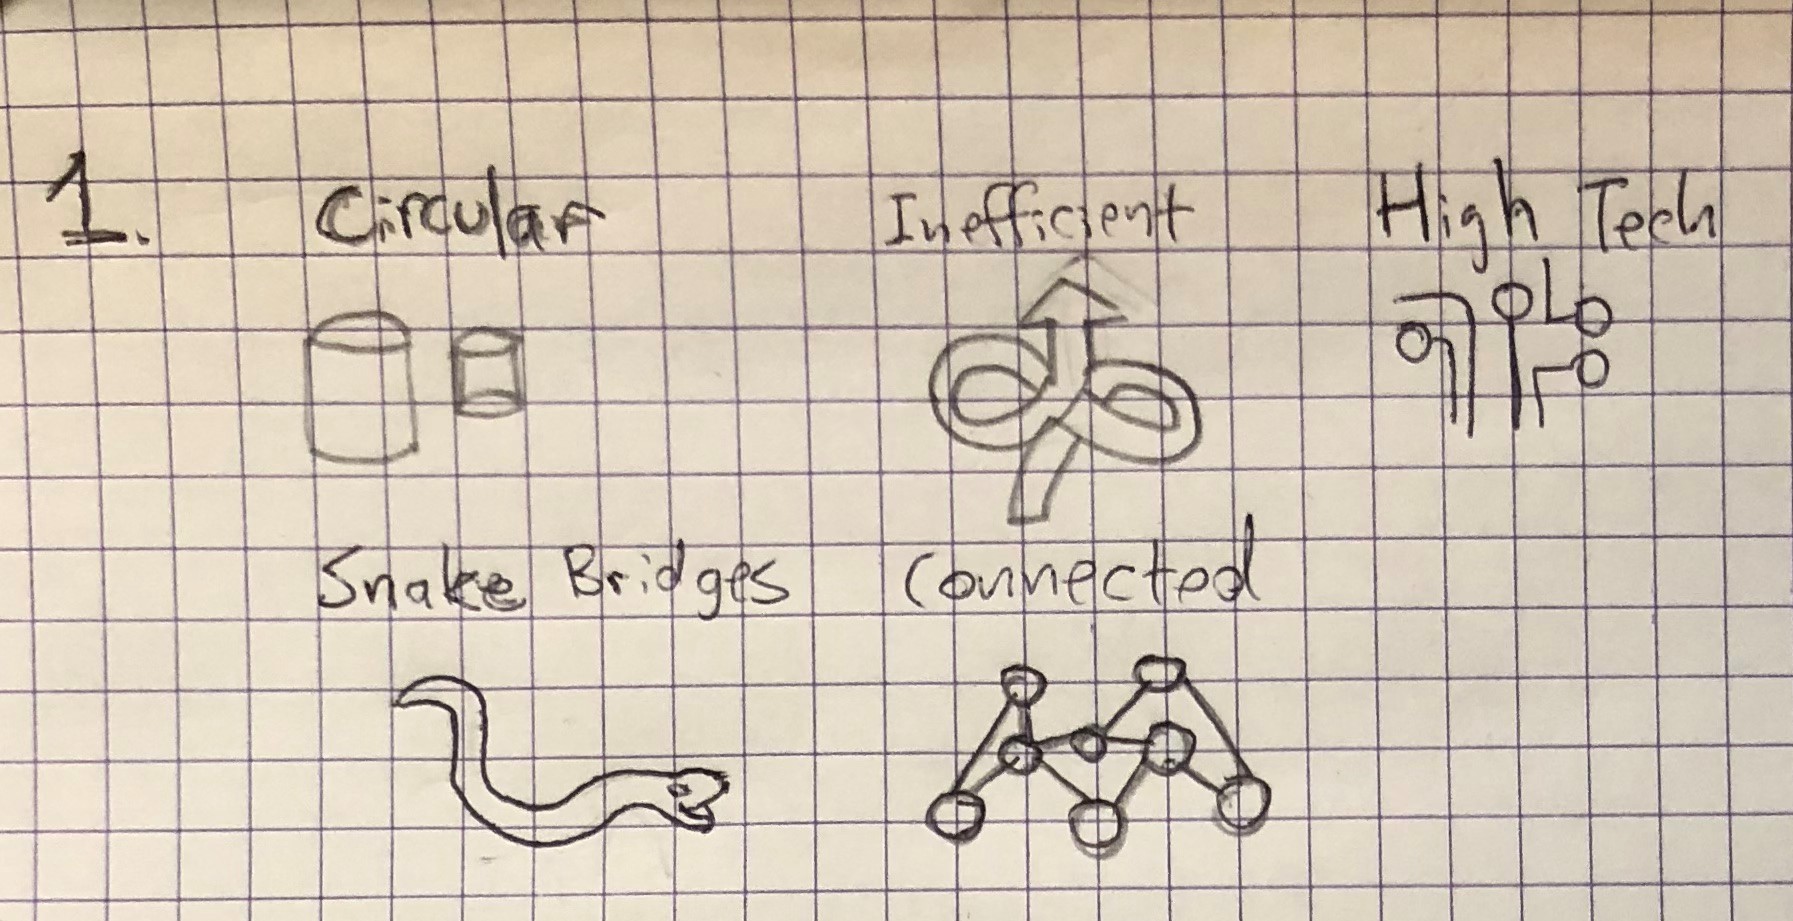 1. Circular Inefficient High Tech
Snake Bridges Connected